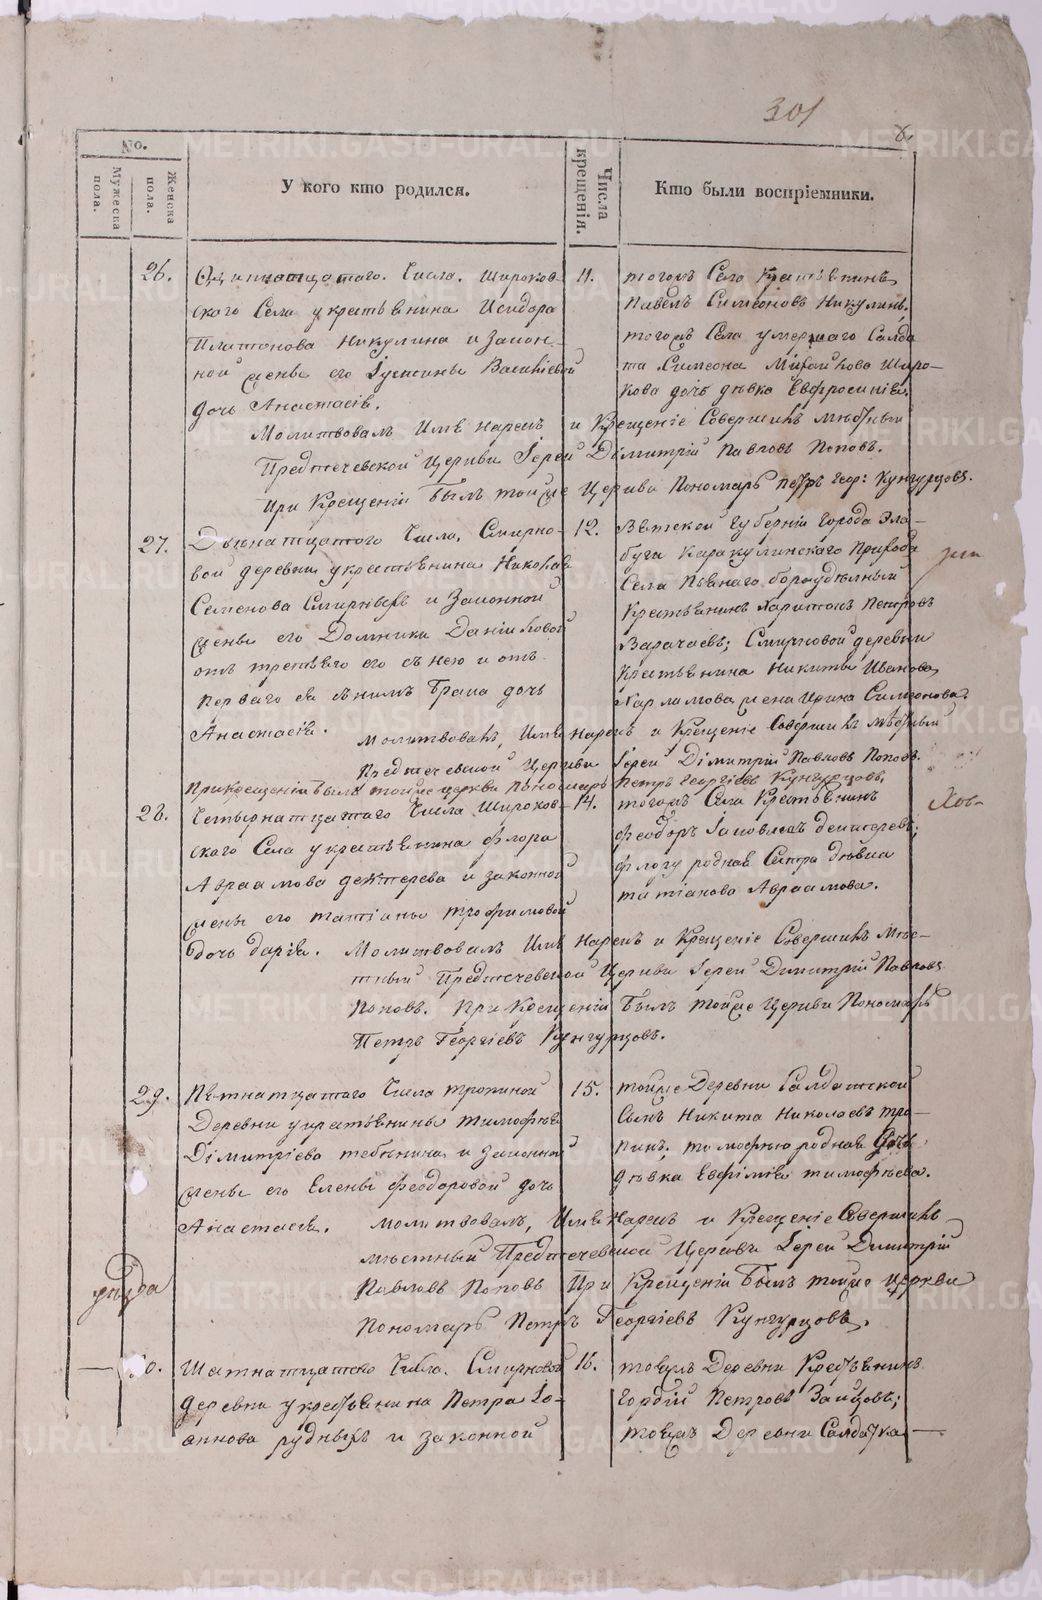 301
8.
No.
Мужеска пола.
Женска пола.
У кого кто родился.
Числа крещенія.
Кто были воспріемники.
26.
Одиннатцатаго. Числа. Широков-
скаго Села у крестьянина Исидора
Платонова Никулина и Закон-
ной жены его Іустины Василіевой
дочь Анастасія.
11.
тогожъ Села Крестьянинъ
Павелъ Симеоновъ Никулинъ,
тогожъ Села умершаго Салда
та Симеона Широ-
кова дочь дѣвка Евфросинія.
Молитвовалъ Имя нарекъ и Крещеніе Совершилъ мѣстный
Предтечевской Церкви Іерей Димитрій Павловъ Поповъ.
При Крещеніи былъ тойже Церкви Пономарь Петръ Геор: Кунгурцовъ.
27.
Двенатцатаго Числа, Смирно-
вой деревни у крестьянина Николая
Семенова Смирныхъ и Законной
жены его Домники Даніиловой
отъ третьяго его с нею и отъ
перваго ея с нимъ брака дочь
Анастасія.
12.
Вятской губерніи города Эла-
буги Каракулинскаго Прихода
Села Пьянаго бору удѣлный
Крестьянинъ Харитонъ Петровъ
Варачаевъ; Смирновой деревни
Крестьянина Никиты Иванова
Харламова жена Ирина Симеонова.
Молитвовалъ, Имя нарекъ и Крещеніе Совершилъ мѣстный
Предтечевской Церкви Іерей Димитрій Павловъ Поповъ.
При крещеніи былъ тойже церкви пономарь Петръ Георгіевъ Кунгурцовъ.
28.
Четырнатцатаго Числа Широков-
скаго Села у крестьянина Флора
Авраамова дехтерева и законной
жены его татіаны трофимовой
дочь дарія.
14.
тогожъ Села Крестьянинъ
Феодоръ Іаковлевъ дехтеревъ;
Флору родная Сестра дѣвка
татіанова Авраамова.
Молитвовалъ Имя Нарекъ и Крещеніе Совершилъ Мѣс-
тный Предтечевской Церкви Іерей Димитрій Павловъ
Поповъ. При Крещеніи былъ тойже Церкви Пономарь
Петръ Георгіевъ Кунгурцовъ.
29.
Пятнатцатаго Числа тропиной
Деревни у крестьянина тимофея
Димитріева тебенича и Законной
жены его Елены Феодоровой дочь
Анастасія.
15.
тойже Деревни Салдатской
Сынъ Никита Николаевъ тро-
пинъ, тимофею родная Дочь
дѣвка Евфимія тимофеева.
молитвовалъ, Имя Нарекъ и Крещеніе Совершилъ
мѣстный Предтечевской Церкви Іерей Димитрій
Павловъ Поповъ При Крещеніи былъ тойже церкви
Пономарь Петръ Георгіевъ Кунгурцовъ.
Шатнатцатаго Числа. Смирновой
деревни у крестьянина Петра Іо-
аннова рудныхъ и законной
16.
тояжъ Деревни Крестьянинъ
Гордій Петровъ Зайцовъ;
тояжъ Деревни Салдатка